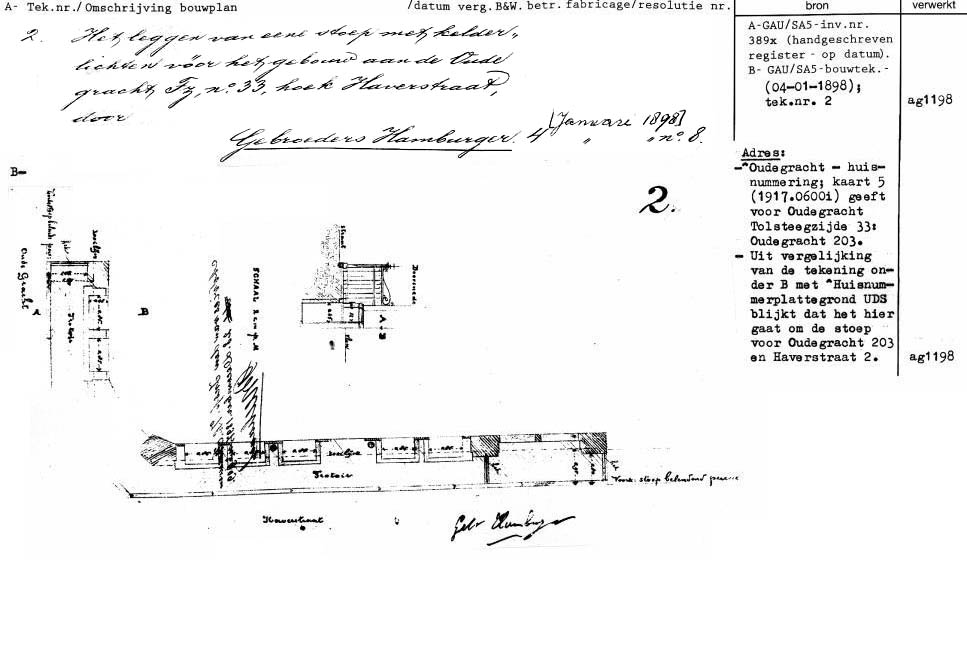 A- Tek.nr./Omschrijving bouwplan /datum verg.B&W. betr. fabricage/resolutie nr. bron verwerkt
2. Het leggen van eene stoep met kelder„
lichten vóór het gebouw aan de Oude
gracht, Fz, no. 33, hoek Haverstraat,
door
[Januari 1898]
Gebroeders Hamburger. 4 „ „ no. 8.
A-GAU/SA5-inv.nr.
389x (handgeschreven
register - op datum).
B- GAU/SA5-bouwtek.-
(04-01-1898);
tek.nr. 2 ag1198
Adres:
-*Oudegracht - huis-
nummering; kaart 5
(1917.0600i) geeft
voor Oudegracht
Tolsteegzijde 33:
Oudegracht 203.
- Uit vergelijking
van de tekening on-
der B met *Huisnum-
merplattegrond UDS
blijkt dat het hier
gaat om de stoep
voor Oudegracht 203
en Haverstraat 2. ag1198
B-
2.
Oude Gracht
A
B
Trotoir
SCHAAL
Doorsnede
A-B
straat
Trotoir
Voork. stoep belendend
Haverstraat
Gebr Hamburger